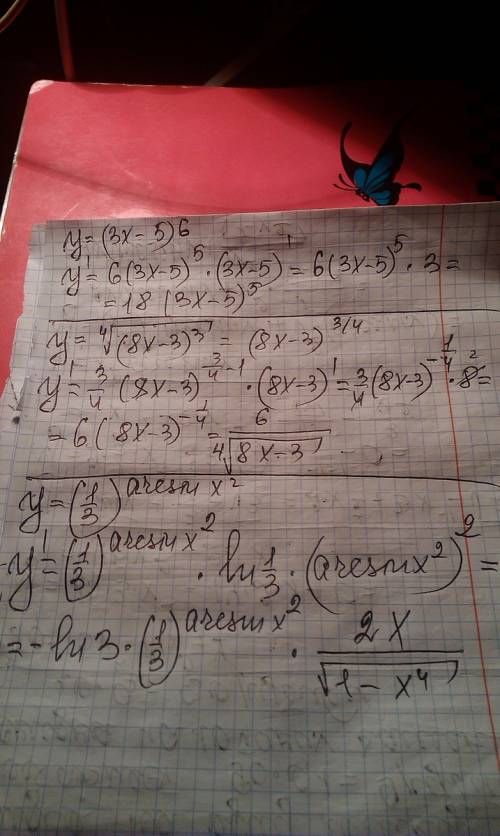 y = (3x - 5)^6
y' = 6(3x-5)^5 · (3x-5)' = 6(3x-5)^5 · 3 =
= 18 (3x-5)^5
y = ⁴√((8x-3)^3) = (8x-3)^(3/4)
y' = 3/4 (8x-3)^(3/4 - 1) · (8x-3)' = 3/4 (8x-3)^(-1/4) · 8^2 =
= 6(8x-3)^(-1/4) = 6/⁴√(8x-3)
y = (1/3)^(arcsin x^2)
y' = (1/3)^(arcsin x^2) · ln 1/3 · (arcsin x^2)^2 =
= - ln 3 · (1/3)^(arcsin x^2) · 2x/√(1 - x^4)